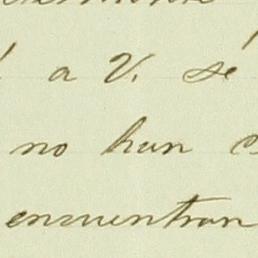 a V. sé
no han
encuentran